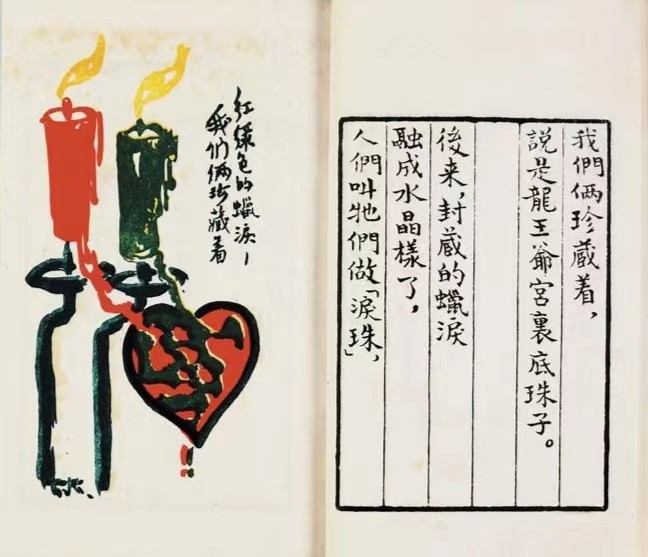 我們俩珍蔵着，
說是龍王爺宮裏底珠子。
後来，封蔵的蠟淚
融成水晶樣了，
人們叫牠們做「淚珠」，
红绿色的蠟淚—
我们俩珍藏着